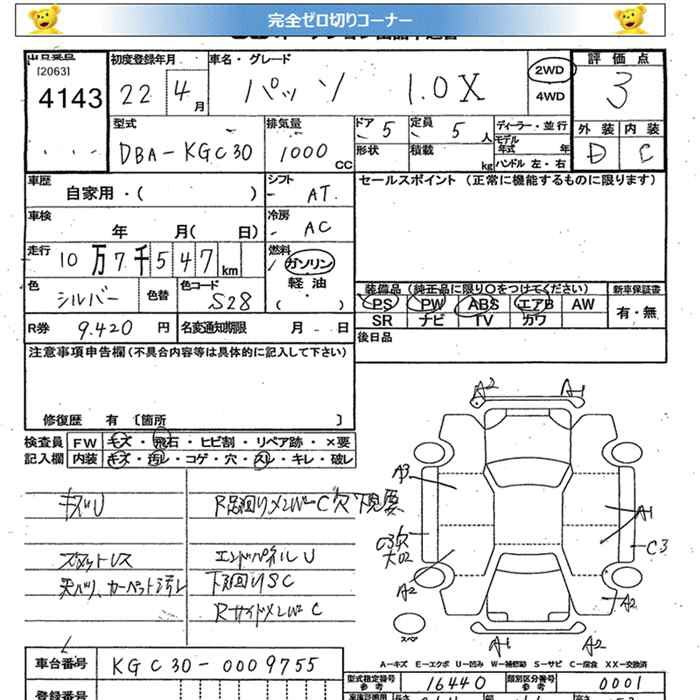 完全ゼロ切りコーナー
[2063]
4143
初度登録年月
22 4月
車名・グレード
パッソ 1.0X
2WD
4WD
評価点
3
外装 内装
D C
型式
DBA-KGC30
排気量
1000 CC
ドア 5
定員 5 人
形状
積載 kg
ディーラー・並行
モデル年式 年
ハンドル 左・右
車歴
自家用・( )
シフト
AT
セールスポイント (正常に機能するものに限ります)
車検
年 月( 日)
冷房
AC
走行
10万7千547km
燃料
ガソリン
軽油
( ・ )
色
シルバー
色替
色コード
S28
装備品 (純正品に限り○をつけてください) 新車保証書
PS PW ABS エアB AW
SR ナビ TV カワ
有・無
R券 9.420 円
名変通知期限 月 日
後日品
注意事項申告欄(不具合内容等は具体的に記入して下さい)
修復歴 有 〔箇所 〕
検査員 FW キズ・飛石・ヒビ割・リペア跡・×要
記入欄 内装 キズ・汚レ・コゲ・穴・スレ・キレ・破レ
キズU
R足廻りメンバーC穴下見要
エンドパネルU
天バリ、カーペット汚レ
下廻りSC
RサイドメンバーC
A2 A1
A3
A1
C3穴
C3
A2
A2
スペア
A1 A2
A-キズ E-エクボ U-凹み W-補修跡 S-サビ C-腐食 XX-交換済
車台番号 KGC30-0009755
型式指定番号 参考 16440
類別区分番号 参考 0001
登録番号